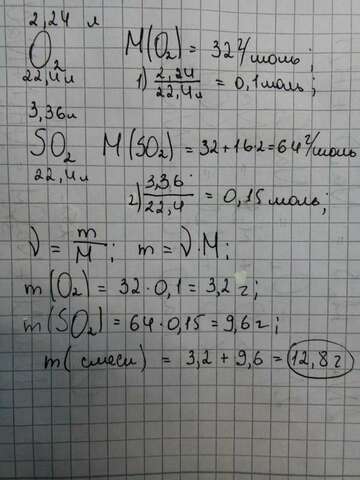 2,24 л
O₂ M(O₂) = 32 г/моль;
22,4л 1) 2,24/22,4л = 0,1моль;
3,36л
SO₂ M(SO₂) = 32+16·2=64 г/моль
22,4л 2) 3,36/22,4 = 0,15 моль;
ν = m/M; m = ν·M;
m(O₂) = 32·0,1 = 3,2 г;
m(SO₂) = 64·0,15 = 9,6 г;
m(смеси) = 3,2 + 9,6 = 12,8 г